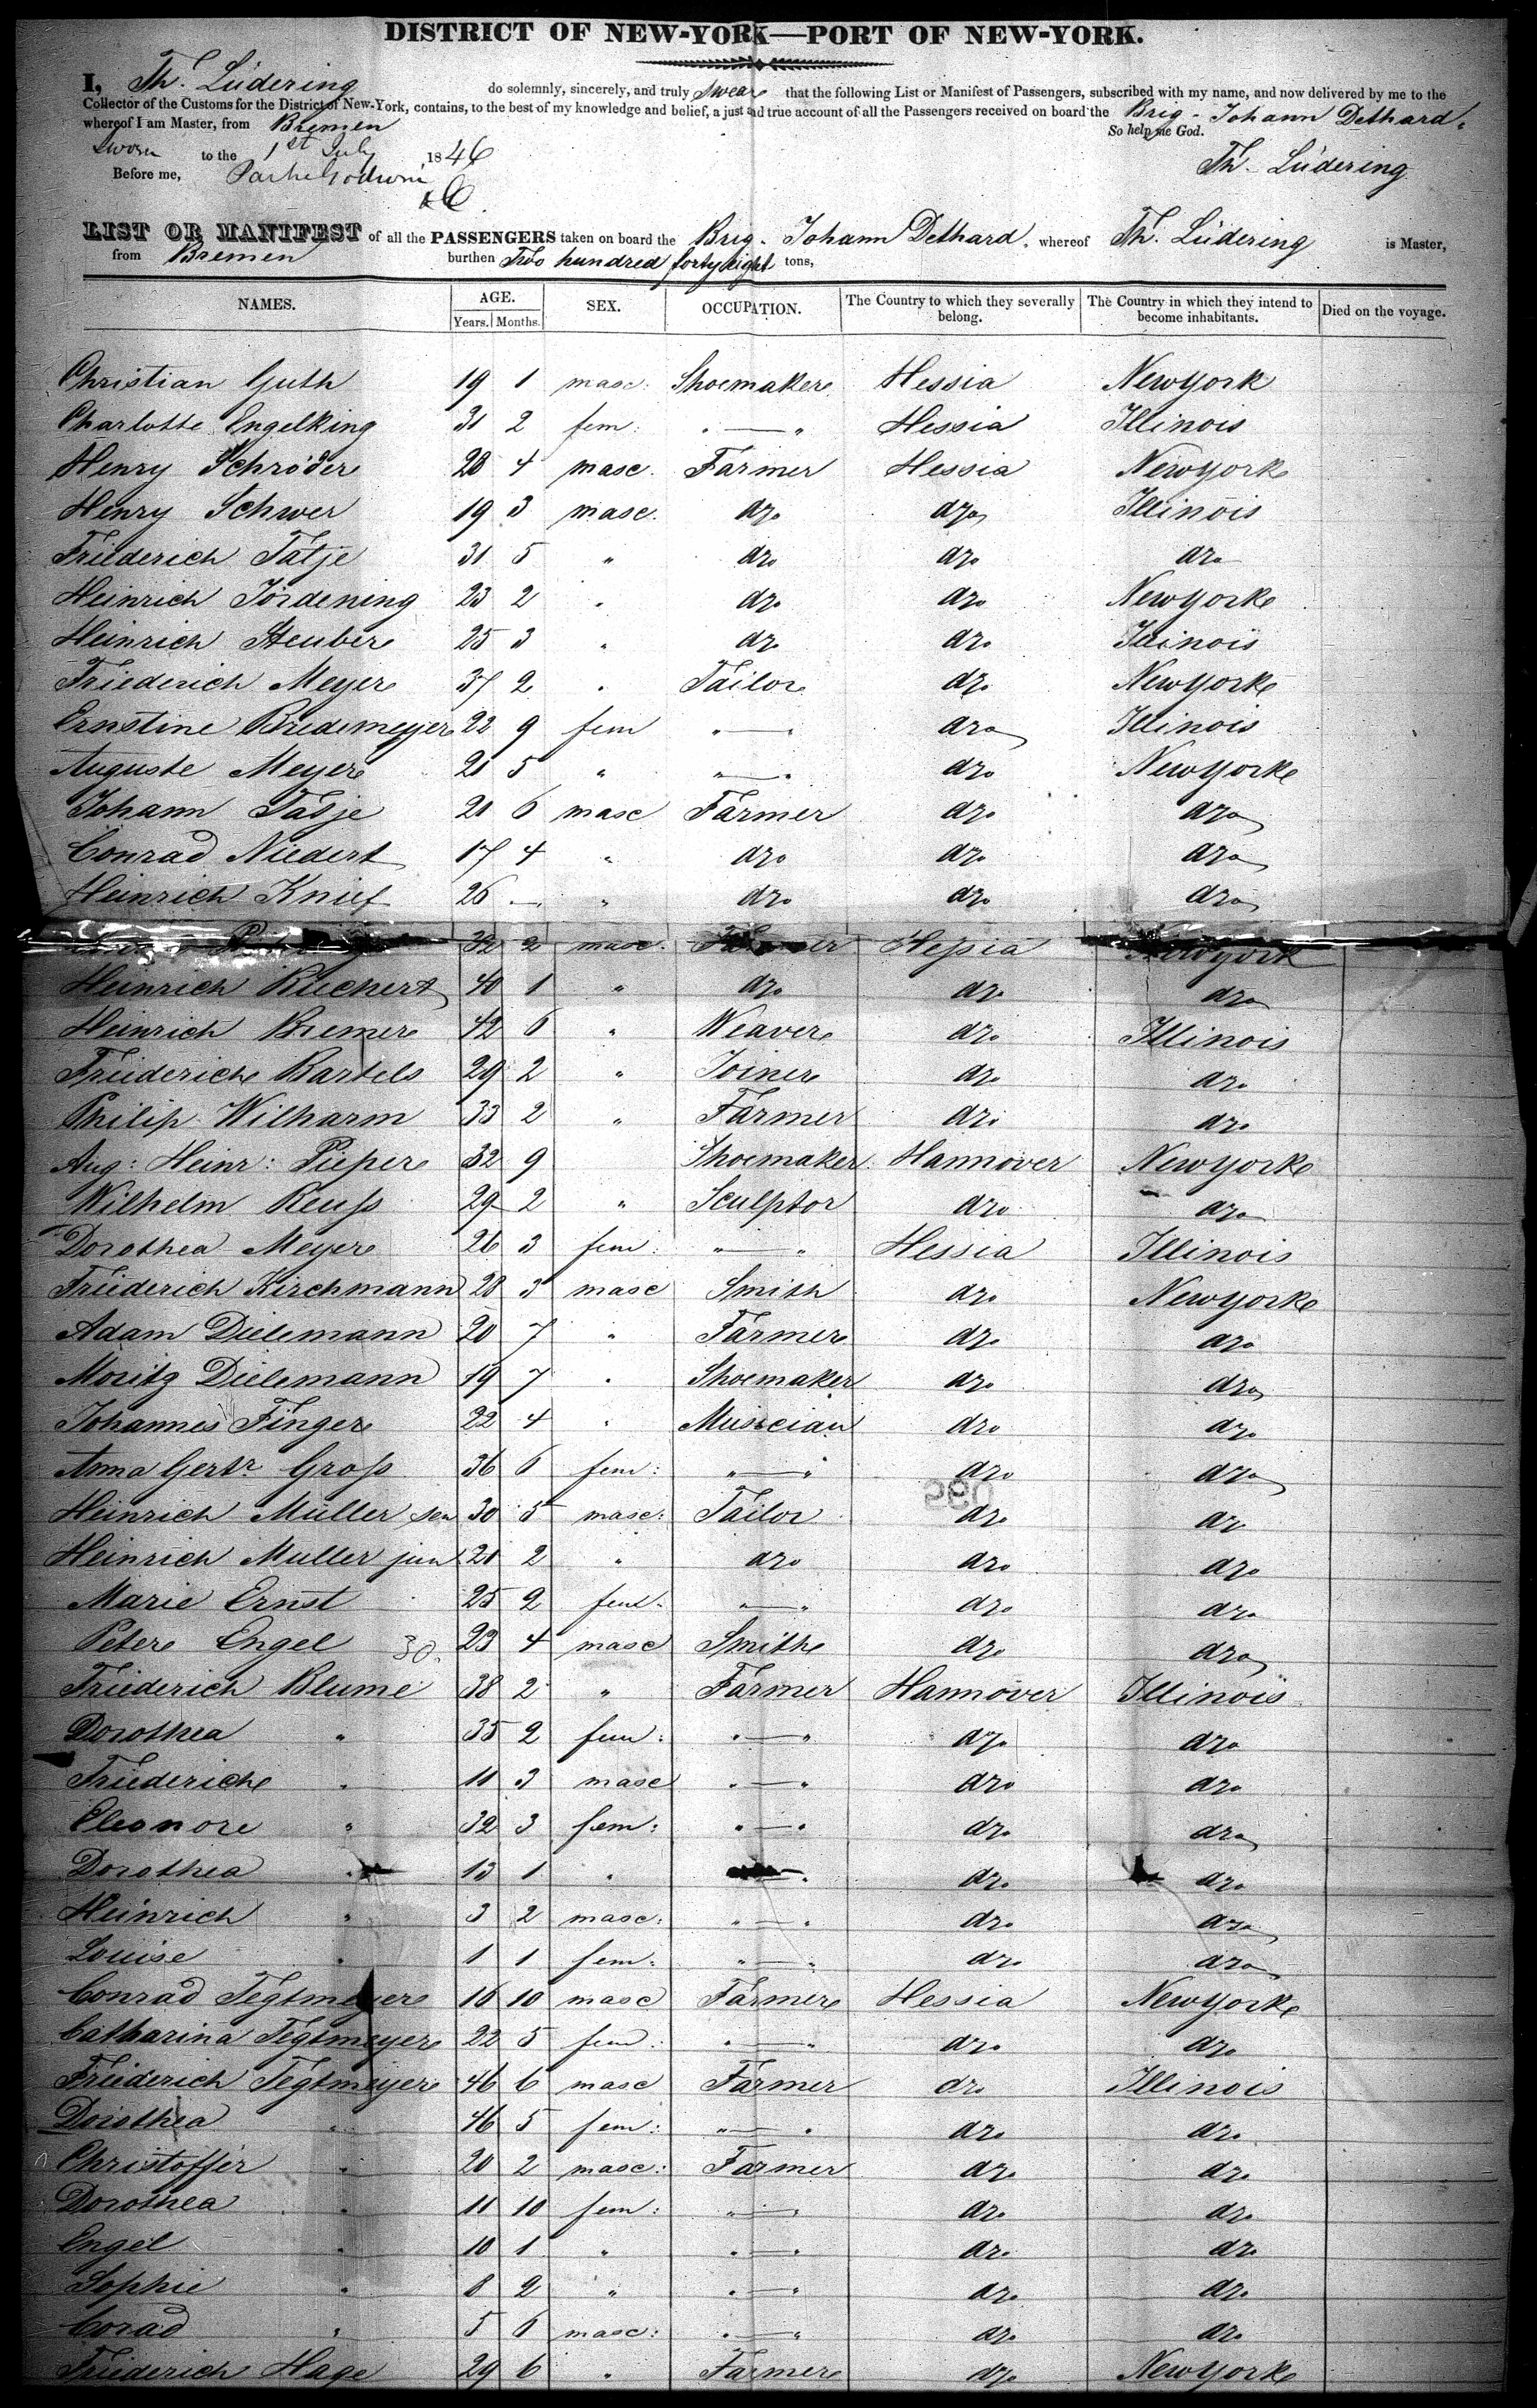 DISTRICT OF NEW-YORK—PORT OF NEW-YORK.
I, Th. Lüdering do solemnly, sincerely, and truly swear that the following List or Manifest of Passengers, subscribed with my name, and now delivered by me to the
Collector of the Customs for the District of New-York, contains, to the best of my knowledge and belief, a just and true account of all the Passengers received on board the Brig. Johann Dethard.
whereof I am Master, from Bremen So help me God.
Sworn to the 1st July 1846 Th. Lüdering
Before me,
LIST OR MANIFEST of all the PASSENGERS taken on board the Brig. Johann Dethard. whereof Th. Lüdering is Master,
from Bremen burthen Two hundred forty eight tons,
NAMES. AGE. SEX. OCCUPATION. The Country to which they severally belong. The Country in which they intend to become inhabitants. Died on the voyage.
Years. Months.
Christian Guth 19 1 masc: Shoemaker Hessia Newyork
Charlotte Engelking 31 2 fem: "—" Hessia Illinois
Henry Schröder 28 4 masc. Farmer Hessia Newyork
Henry Schwer 19 3 masc. dzo dzo Illinois
Friederich Tatje 31 5 " dzo dzo dzo
Heinrich Jördening 23 2 " dzo dzo Newyork
Heinrich Steuber 25 3 " dzo dzo Illinois
Friederich Meyer 37 2 " Tailor dzo Newyork
Ernstine Bredemeyer 22 9 fem "—" dzo Illinois
Auguste Meyer 21 5 " "—" dzo Newyork
Johann Tatje 21 6 masc Farmer dzo dzo
Conrad Niedert 17 4 " dzo dzo dzo
Heinrich Knief 26 — " dzo dzo dzo
32 2 masc. Farmer Heßia Newyork
Heinrich Ruchert 40 1 " dzo dzo dzo
Heinrich Bremer 42 6 " Weaver dzo Illinois
Friederich Bartels 29 2 " Joiner dzo dzo
Philip Wilharm 33 2 " Farmer dzo dzo
Aug: Heinr: Pieper 32 9 Shoemaker Hannover Newyork
Wilhelm Reuß 29 2 " Sculptor dzo dzo
Dorothea Meyer 26 3 fem: "—" Hessia Illinois
Friederich Kirchmann 28 3 masc Smith dzo Newyork
Adam Dielemann 20 7 " Farmer dzo dzo
Moritz Dielemann 19 7 " Shoemaker dzo dzo
Johannes Finger 22 4 " Musician dzo dzo
Anna Gertr. Groß 36 6 fem: "—" dzo dzo
Heinrich Müller sen 30 5 masc: Tailor dzo dzo
Heinrich Muller jun 21 2 " dzo dzo dzo
Marie Ernst 25 2 fem: "—" dzo dzo
Peter Engel 30. 23 4 masc Smith dzo dzo
Friederich Blume 38 2 " Farmer Hannover Illinois
Dorothea " 35 2 fem: "—" dzo dzo
Friederich " 11 3 masc "—" dzo dzo
Eleonore " 32 3 fem: "—" dzo dzo
Dorothea " 13 1 " "—" dzo dzo
Heinrich " 3 2 masc: "—" dzo dzo
Louise " 1 1 fem: "—" dzo dzo
Conrad Tegtmeyer 16 10 masc Farmer Hessia Newyork
Catharina Tegtmeyer 22 5 fem: "—" dzo dzo
Friederich Tegtmeyer 46 6 masc Farmer dzo Illinois
Dorothea " 46 5 fem: "—" dzo dzo
Christoffer " 20 2 masc: Farmer dzo dzo
Dorothea " 11 10 fem: "—" dzo dzo
Engel " 10 1 " "—" dzo dzo
Sophie " 8 2 " "—" dzo dzo
Corad " 5 6 masc: "—" dzo dzo
Friederich Hage 29 6 " Farmer dzo Newyork